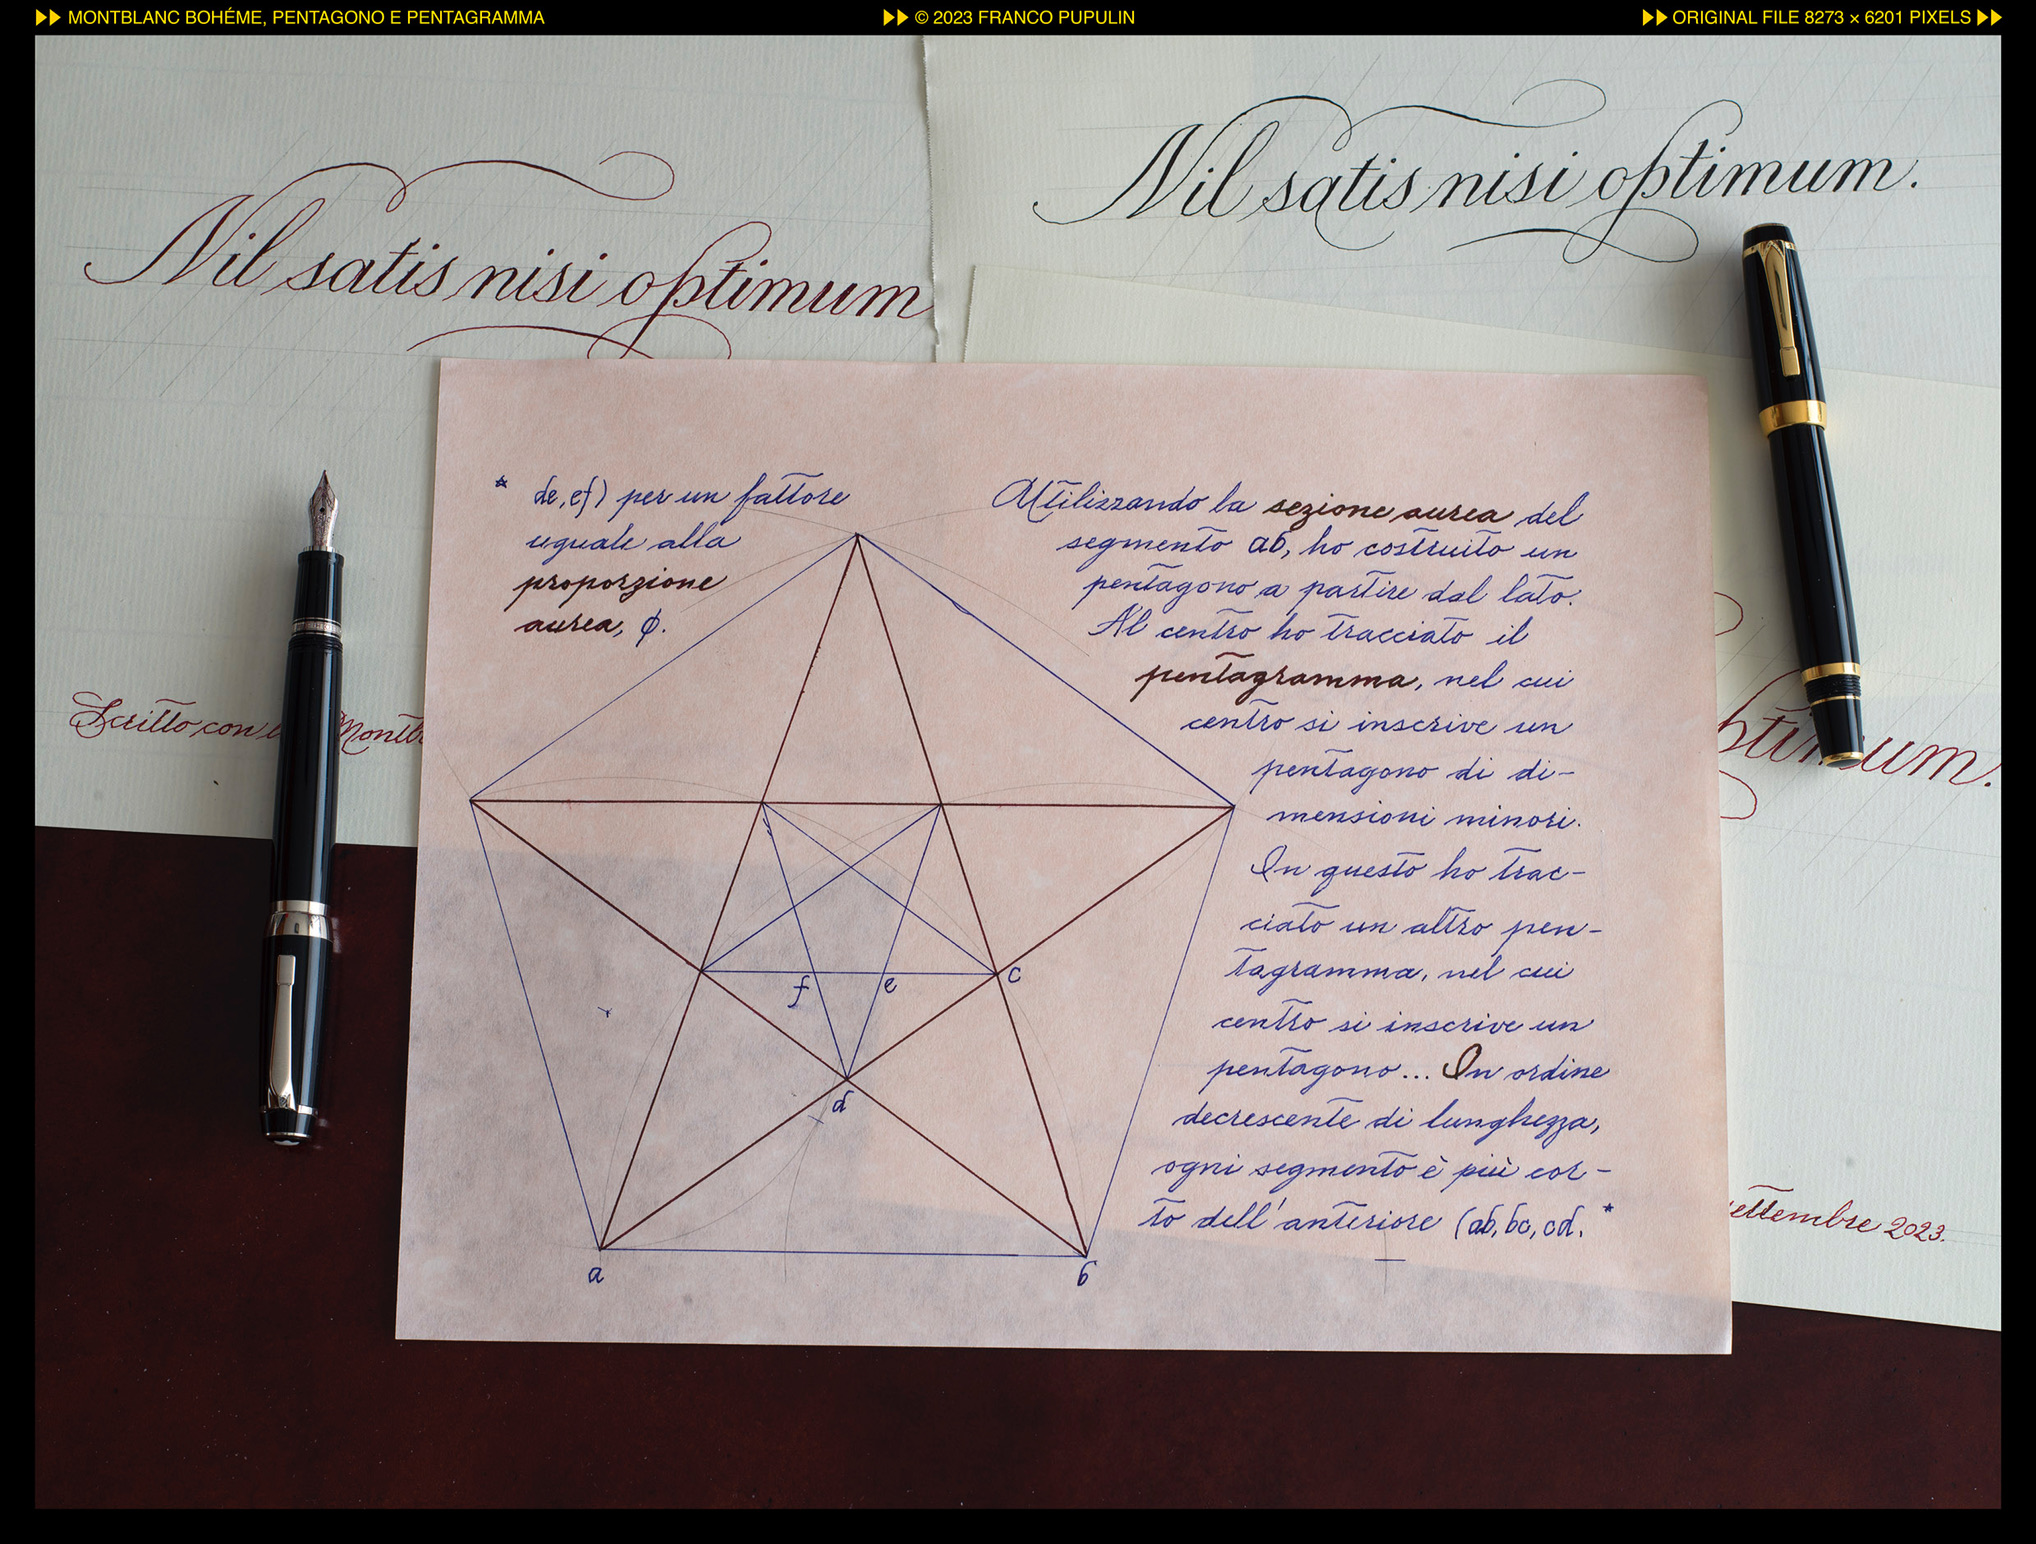 MONTBLANC BOHÉME, PENTAGONO E PENTAGRAMMA
© 2023 FRANCO PUPULIN
ORIGINAL FILE 8273 × 6201 PIXELS
Nil satis nisi optimum.
Nil satis nisi optimum
Utilizzando la sezione aurea del
segmento ab, ho costruito un
pentagono a partire dal lato.
Al centro ho tracciato il
pentagramma, nel cui
centro si inscrive un
pentagono di di-
mensioni minori.
In questo ho trac-
ciato un altro pen-
tagramma, nel cui
centro si inscrive un
pentagono... In ordine
decrescente di lunghezza,
ogni segmento è più cor-
to dell'anteriore (ab, bc, cd, *
* de, ef) per un fattore
uguale alla
proporzione
aurea, φ.
f e c
d
a b
Scritto con
optimum.
settembre 2023.